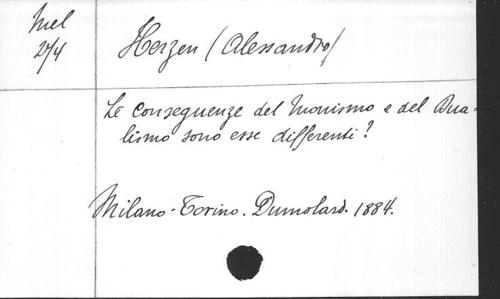 Mel
27/4
Herzen (Alessandro)
Le conseguenze del Monismo e del Dua-
lismo sono esse differenti?
Milano-Torino. Dumolard. 1884.